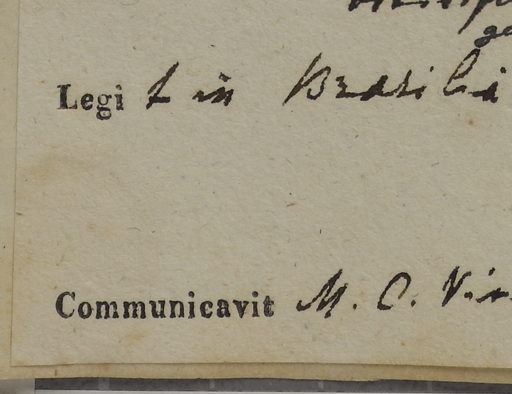 Legit in Brasilia
Communicavit M. O.